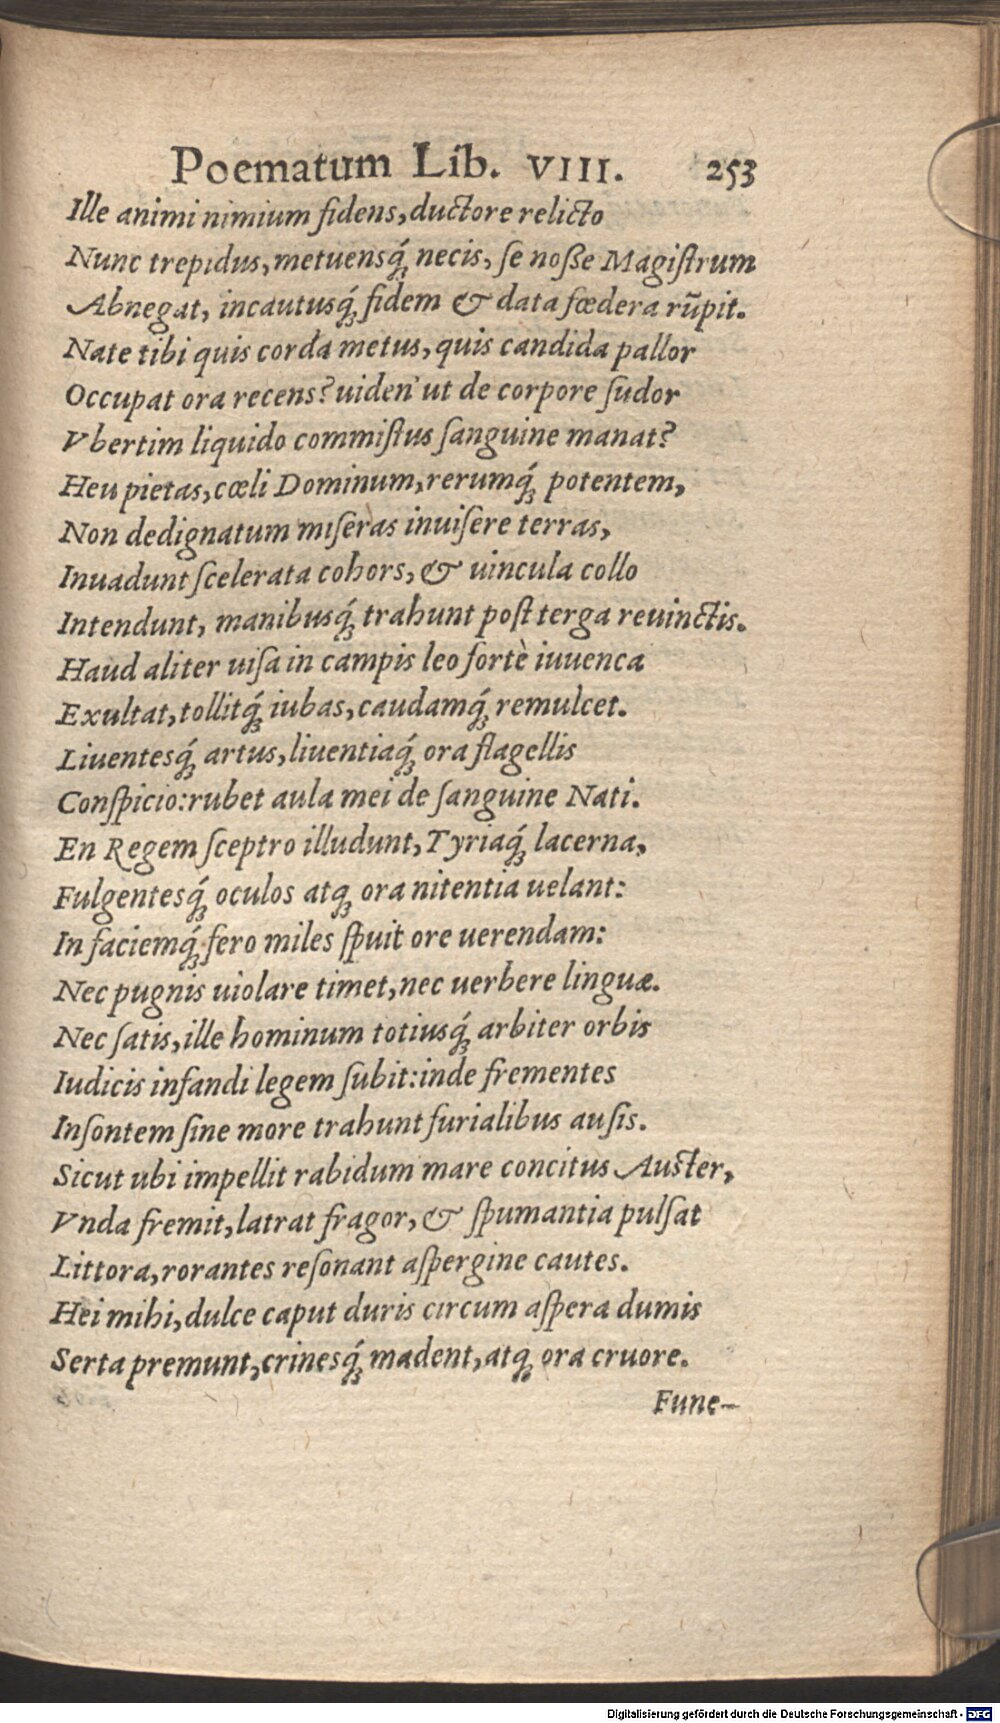 Poematum Lib. VIII. 253
Ille animi nimium fidens, ductore relicto
Nunc trepidus, metuensq́ꝫ necis, se noſße Magiſtrum
Abnegat, incautusq́ꝫ fidem & data fœdera rũpit.
Nate tibi quis corda metus, quis candida pallor
Occupat ora recens? uiden' ut de corpore ſudor
Vbertim liquido commiſtus ſanguine manat?
Heu pietas, cœli Dominum, rerumq́ꝫ potentem,
Non dedignatum miſeras inuiſere terras,
Inuadunt ſcelerata cohors, & uincula collo
Intendunt, manibusq́ꝫ trahunt poſt terga reuinctis.
Haud aliter uiſa in campis leo fortè iuuenca
Exultat, tollitq́ꝫ iubas, caudamq́ꝫ remulcet.
Liuentesq́ꝫ artus, liuentiaq́ꝫ ora flagellis
Conſpicio: rubet aula mei de ſanguine Nati.
En Regem ſceptro illudunt, Tyriaq́ꝫ lacerna,
Fulgentesq́ꝫ oculos atqꝫ ora nitentia uelant:
In faciemq́ꝫ fero miles ſpuit ore uerendam:
Nec pugnis uiolare timet, nec uerbere linguæ.
Nec ſatis, ille hominum totiusq́ꝫ arbiter orbis
Iudicis infandi legem ſubit: inde frementes
Inſontem ſine more trahunt furialibus auſis.
Sicut ubi impellit rabidum mare concitus Auster,
Vnda fremit, latrat fragor, & ſpumantia pulſat
Littora, rorantes reſonant aſpergine cautes.
Hei mihi, dulce caput duris circum aſpera dumis
Serta premunt, crinesq́ꝫ madent, atqꝫ ora cruore.
Fune-
Digitalisierung gefördert durch die Deutsche Forschungsgemeinschaft - DFG